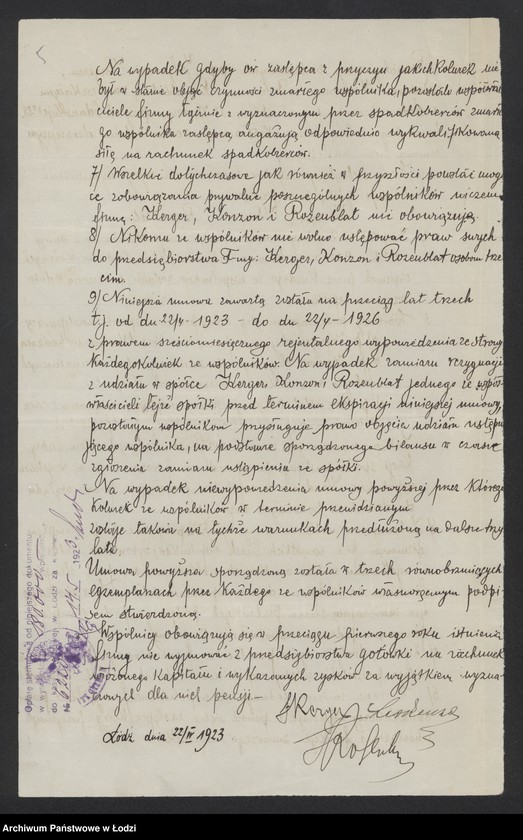 5
Na wypadek gdyby ów zastępca z przyczyn jakichkolwiek nie
był w stanie objąć czynności zmarłego wspólnika, pozostali współwłaś
ciele firmy łącznie z wyznaczonym przez spadkobierców zmarłe
go wspólnika zastępcą angażują odpowiednio wykwalifikowaną
siłę na rachunek spadkobierców.
7/ Wszelkie dotychczasowe jak również w przyszłości powstać mogą
ce zobowiązania prywatne poszczególnych wspólników niczem
firmę: Herger, Konzon i Rozenblat nie obowiązują.
8/ Nikomu ze wspólników nie wolno ustępować praw swych
do przedsiębiorstwa F-my: Herger, Konzon i Rozenblat osobom trze
cim.
9/ Niniejsza umowa zawartą została na przeciąg lat trzech
t.j. od du 22/4 - 1923 - do du 22/4 - 1926
z prawem sześciomiesięcznego rejentalnego wypowiedzenia ze strony
każdegokolwiek ze wspólników. Na wypadek zamiaru rezygnacji
z udziału w spółce Herger, Konzon i Rozenblat jednego ze współ
właścicieli tejże spółki przed terminem ekspiracji niniejszej umowy,
pozostałym wspólnikom przysługuje prawo objęcia udziału ustępu
jącego wspólnika, na podstawie sporządzonego bilansu w czasie
zgłoszenia zamiaru ustąpienia ze spółki.
Na wypadek niewypowiedzenia umowy powyższej przez którego
kolwiek ze wspólników w terminie przewidzianym
zostaje takowa na tychże warunkach przedłużoną na dalsze trzy
lata.
Umowa powyższa sporządzoną została w trzech równobrzmiących
egzemplarzach przez każdego ze wspólników własnoręcznym podpi
sem stwierdzoną.
Wspólnicy obowiązują się w przeciągu pierwszego roku istnienia
firmy nie wyjmować z przedsiębiorstwa gotówki na rachunek
włożonego kapitału i wykazanych zysków za wyjątkiem wyzna
czonych dla nich pensji.—
Łódź dnia 22/IV 1923
Opłatę stemplową od niniejszego dokumentu
w
do
№
1923
Archiwum Państwowe w Łodzi